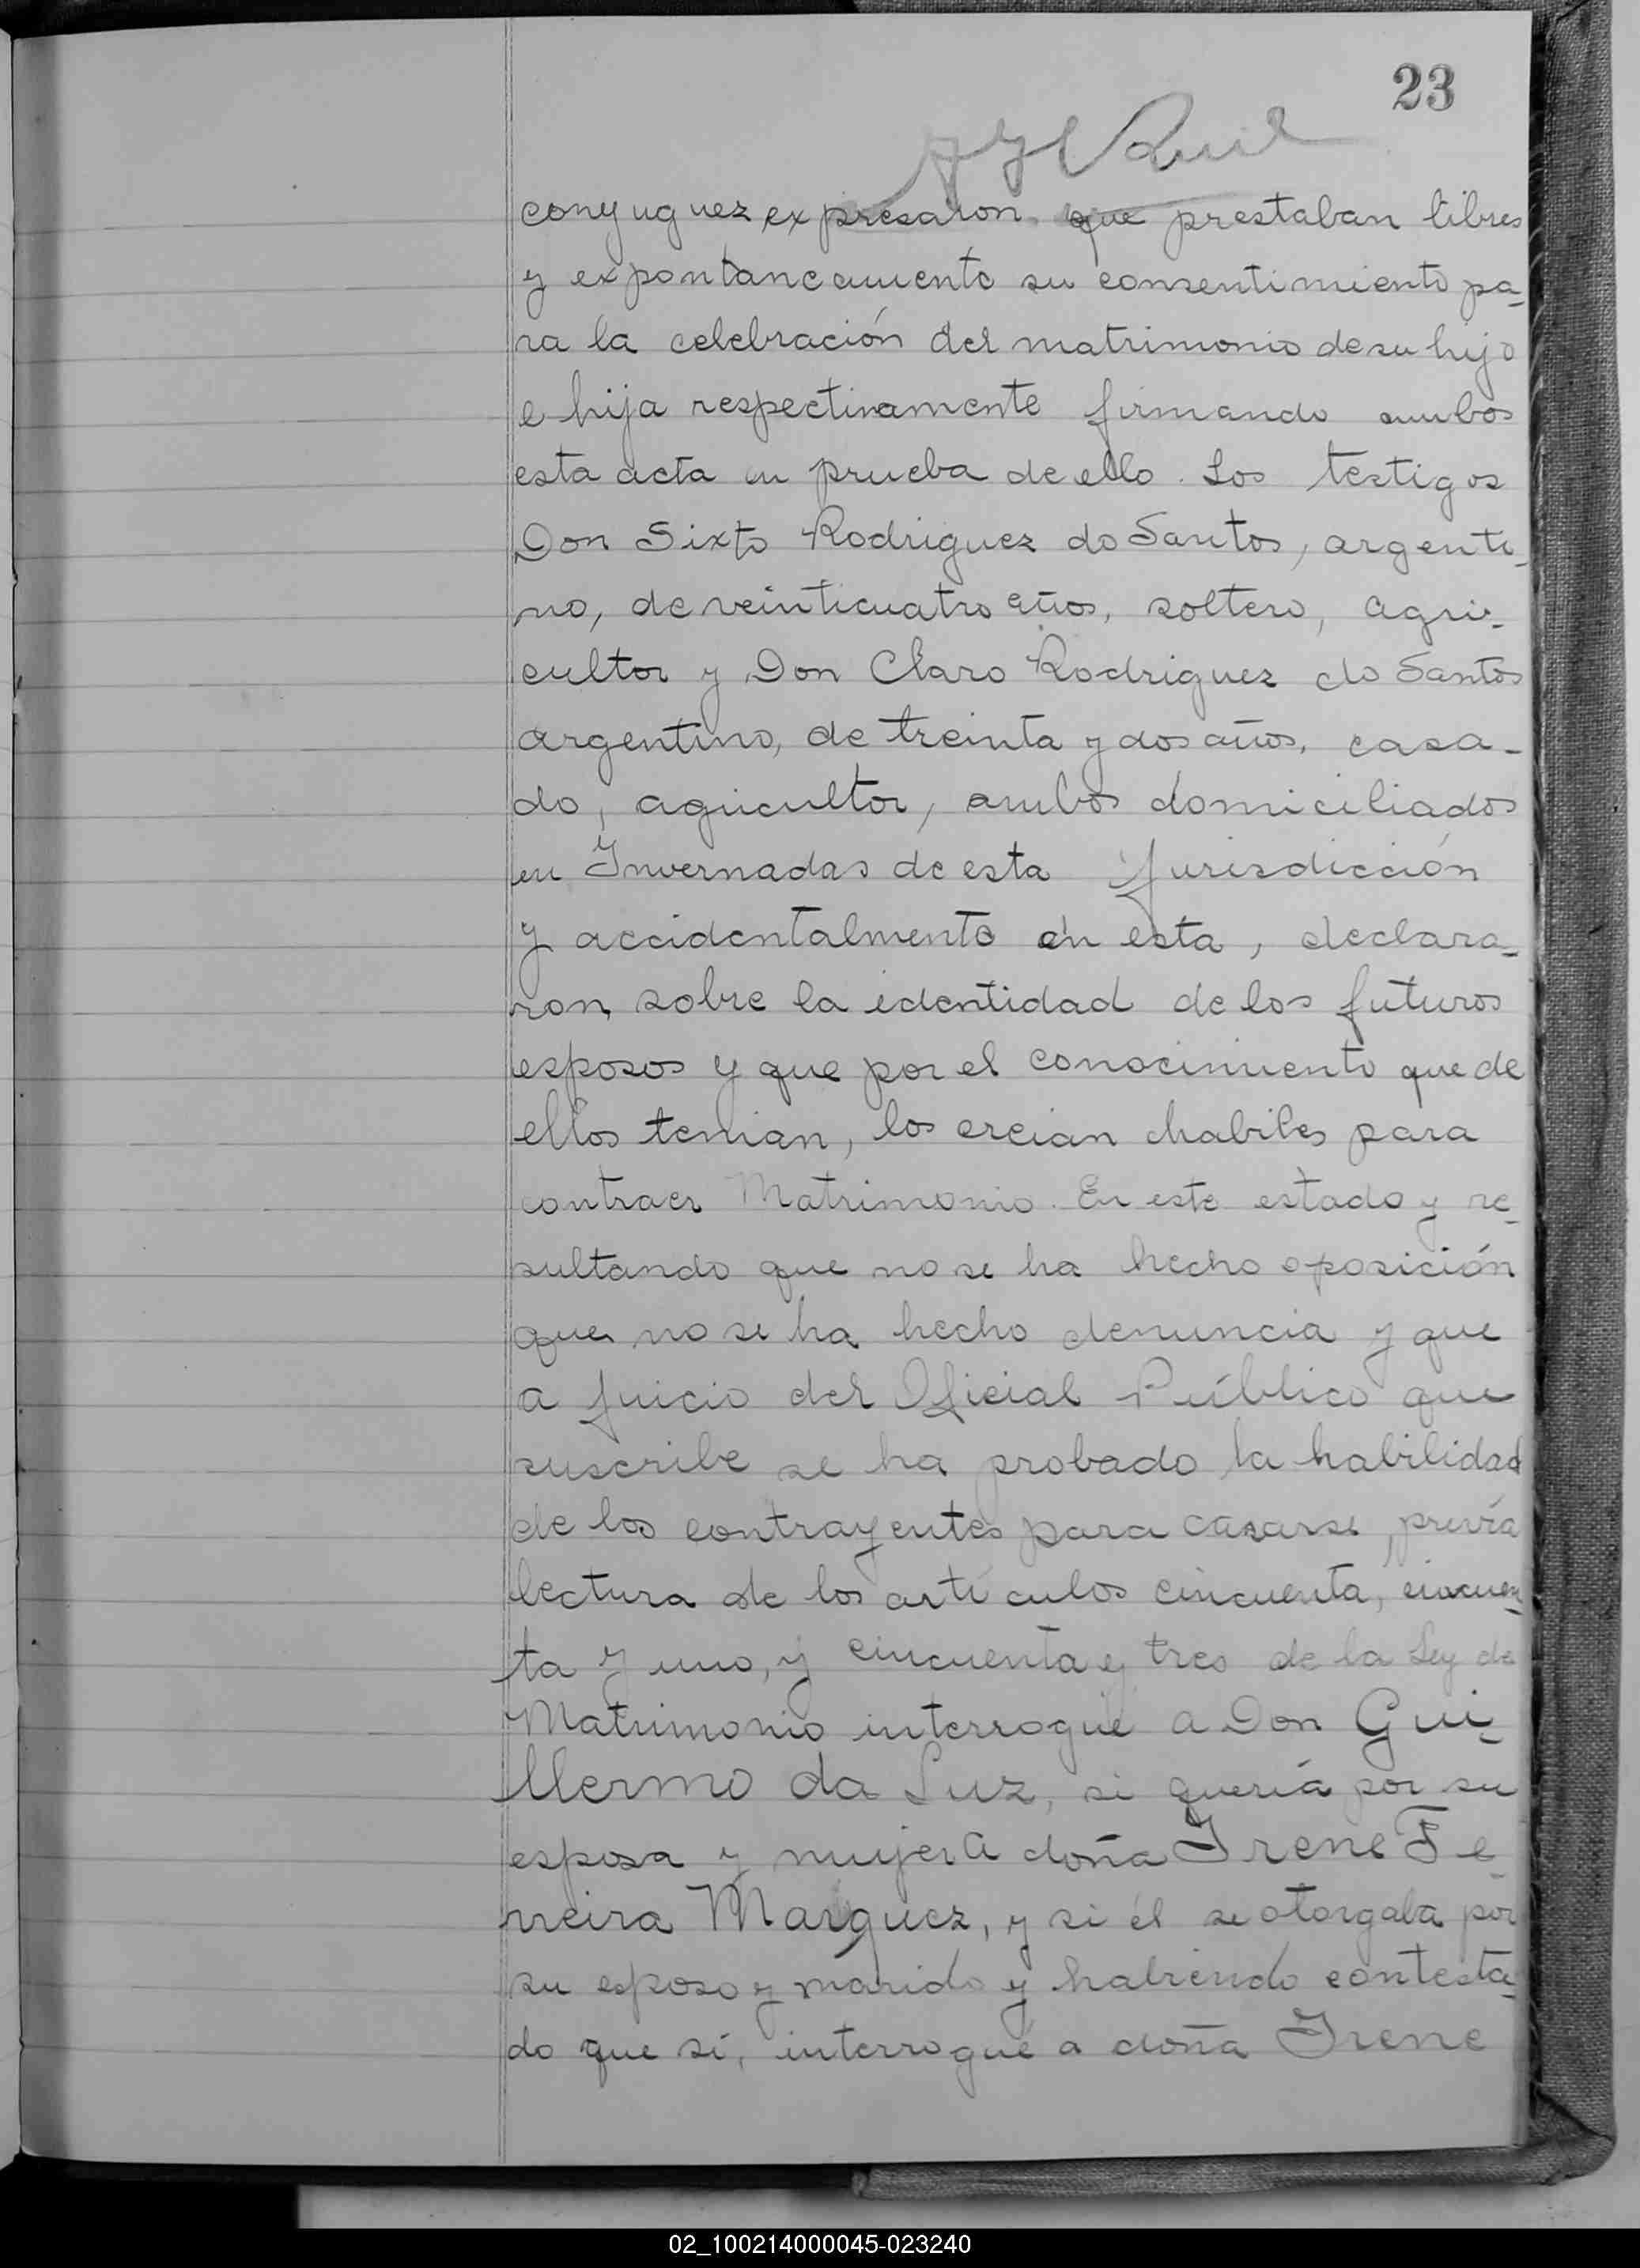 23
conyuguez expresaron que prestaban libres
y expontaneamente su consentimiento pa-
ra la celebración del matrimonio de su hijo
e hija respectivamente firmando ambos
esta acta en prueba de ello. Los testigos
Don Sixto Rodriguez do Santos, argenti-
no, de veinticuatro años, soltero, agri-
cultor y Don Claro Rodriguez do Santos
argentino, de treinta y dos años, casa-
do, agricultor, ambos domiciliados
en Invernadas de esta Jurisdicción
y accidentalmente en esta, declara-
ron sobre la identidad de los futuros
esposos y que por el conocimiento que de
ellos tenian, los creian habiles para
contraer Matrimonio. En este estado y re-
sultando que no se ha hecho oposición
que no se ha hecho denuncia y que
a juicio del Oficial Público que
suscribe se ha probado la habilidad
de los contrayentes para casarse, previa
lectura de los artículos cincuenta, cincuen-
ta y uno, y cincuenta y tres de la Ley de
Matrimonio interrogué a Don Gui-
llermo da Luz, si quería por su
esposa y mujer a doña Irene Fe-
rreira Marquez, y si él se otorgaba por
su esposo y marido y habiendo contesta-
do que sí, interrogué a doña Irene
02_100214000045-023240